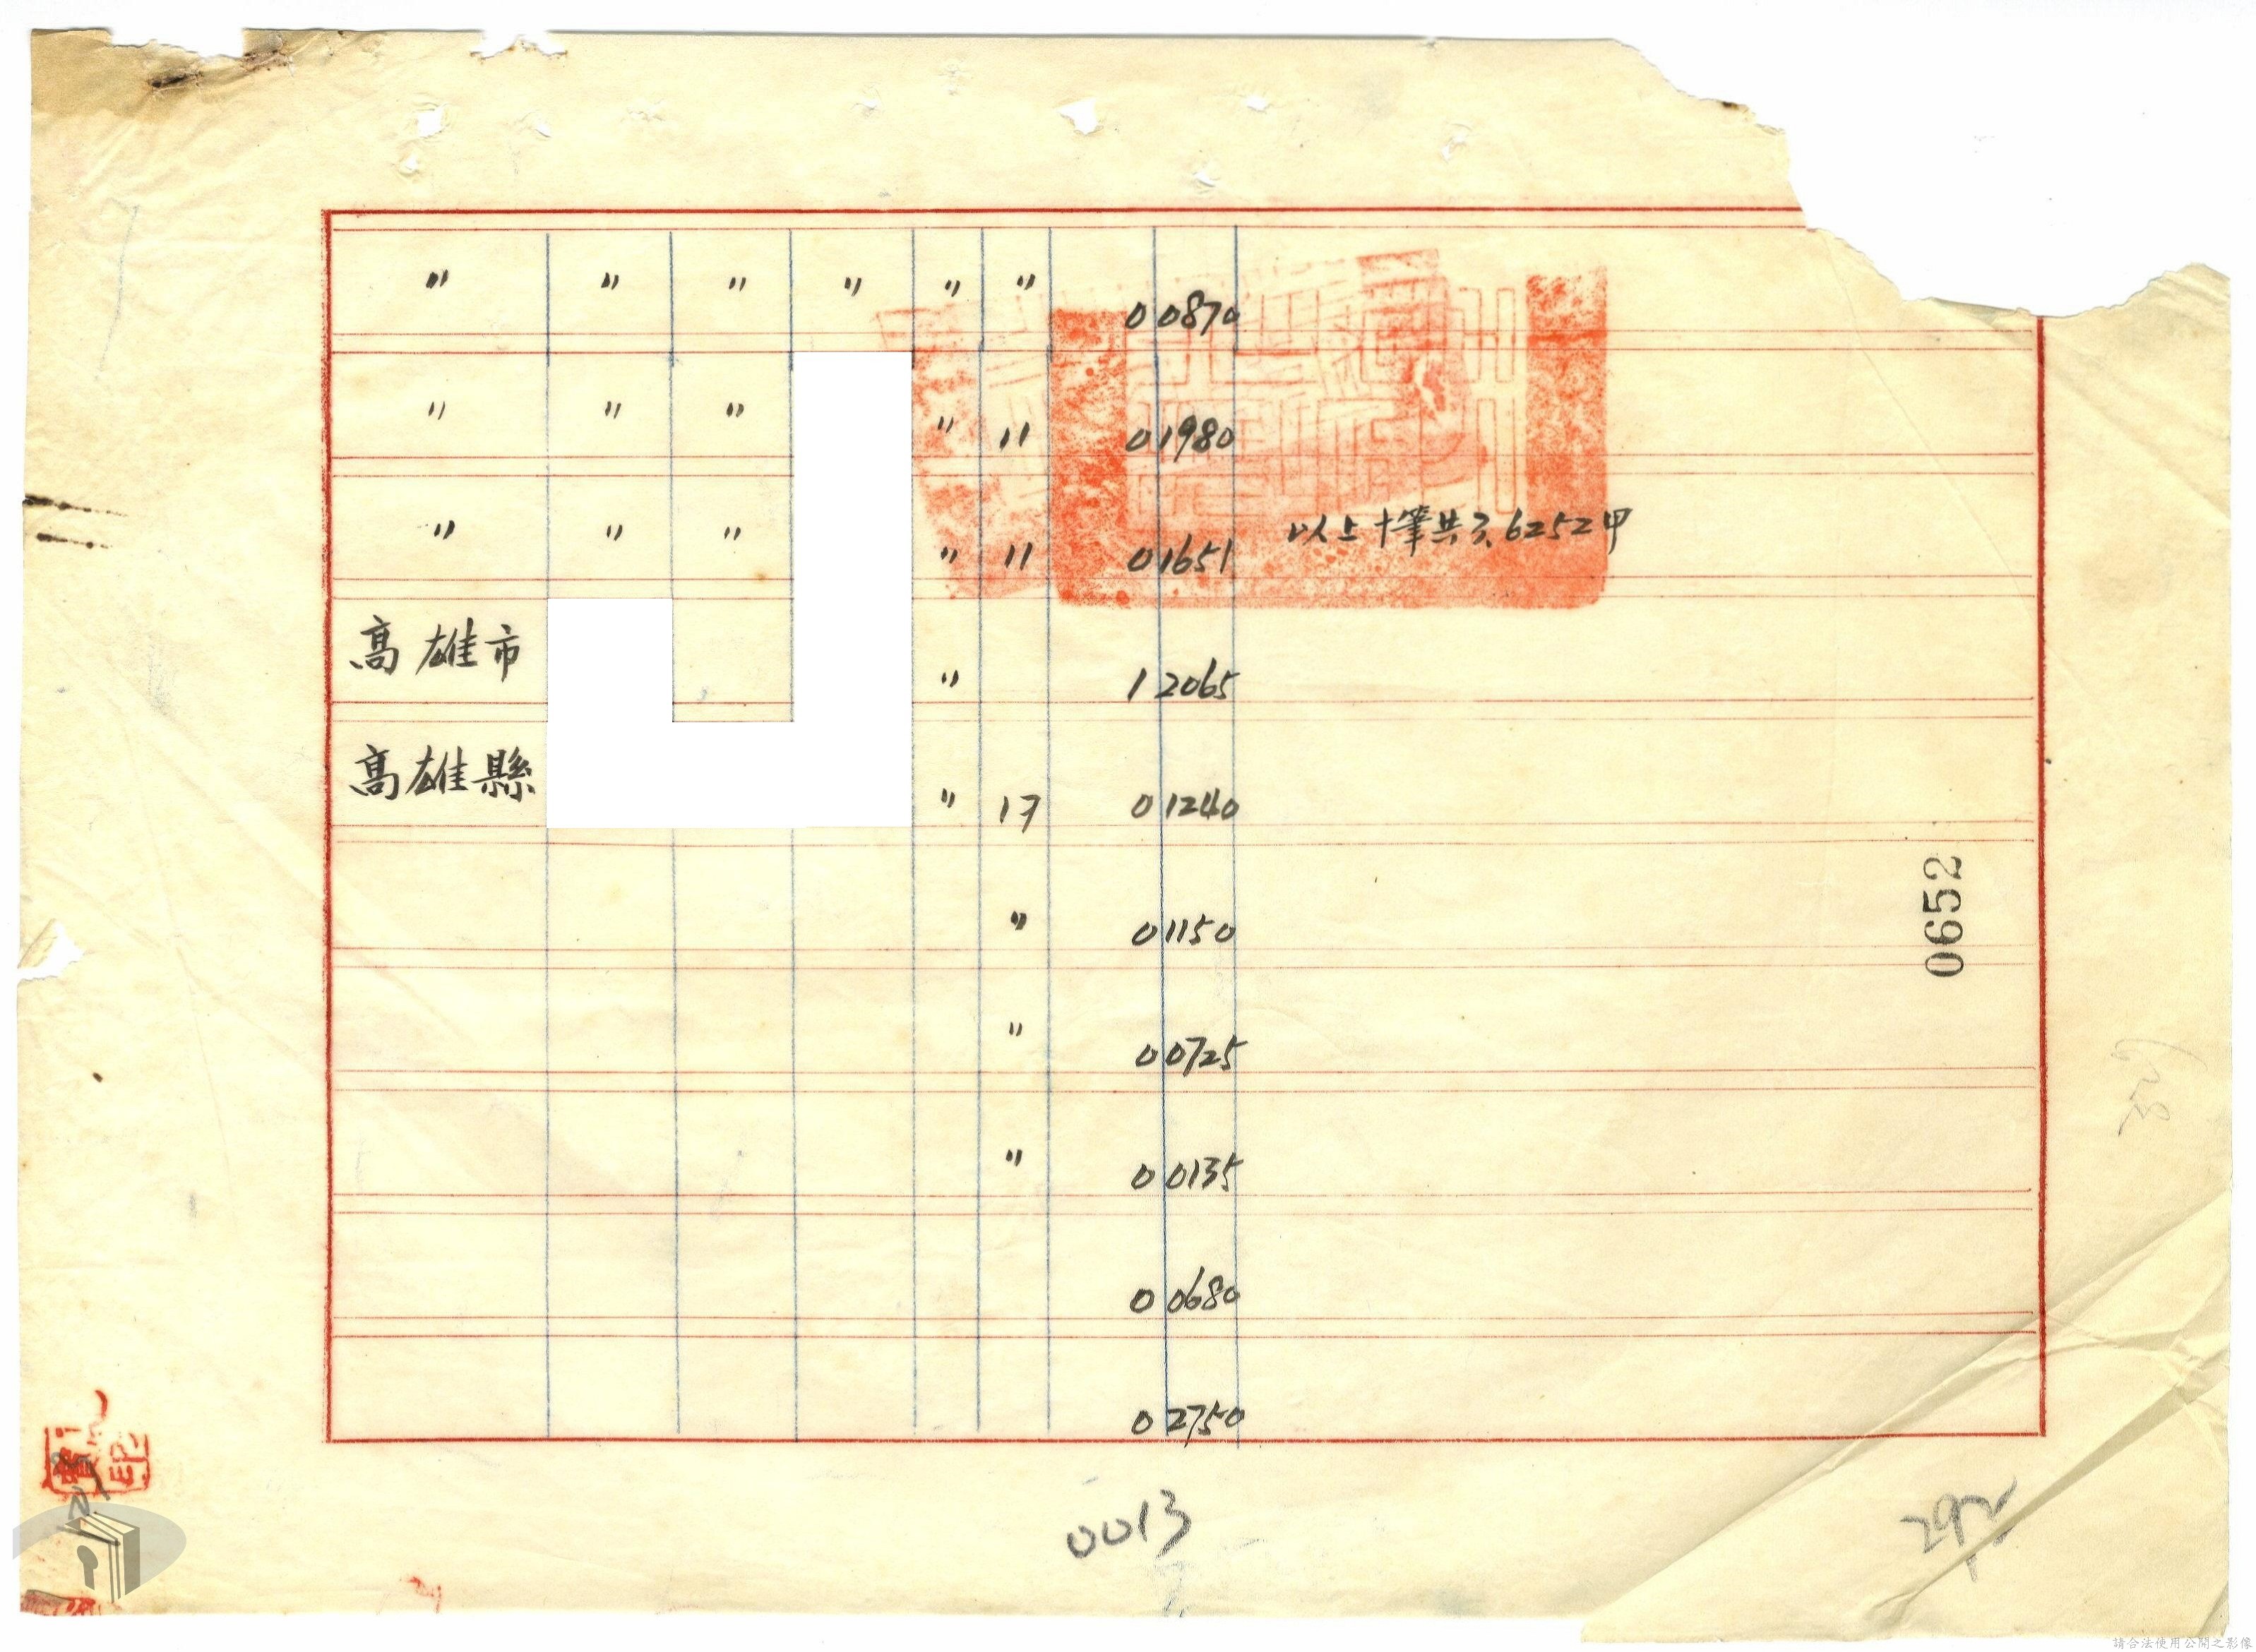 〃 〃 〃 〃 〃 〃 0 0870
〃 〃 〃 〃 11 0 1980
〃 〃 〃 〃 11 0 1651 以上十筆共3.6252甲
高雄市 〃 1 2065
高雄縣 〃 17 0 1240
〃 0 1150
〃 0 0725
〃 0 0135
0 0680
0 2750
0652
0013
292
請合法使用公開之影像